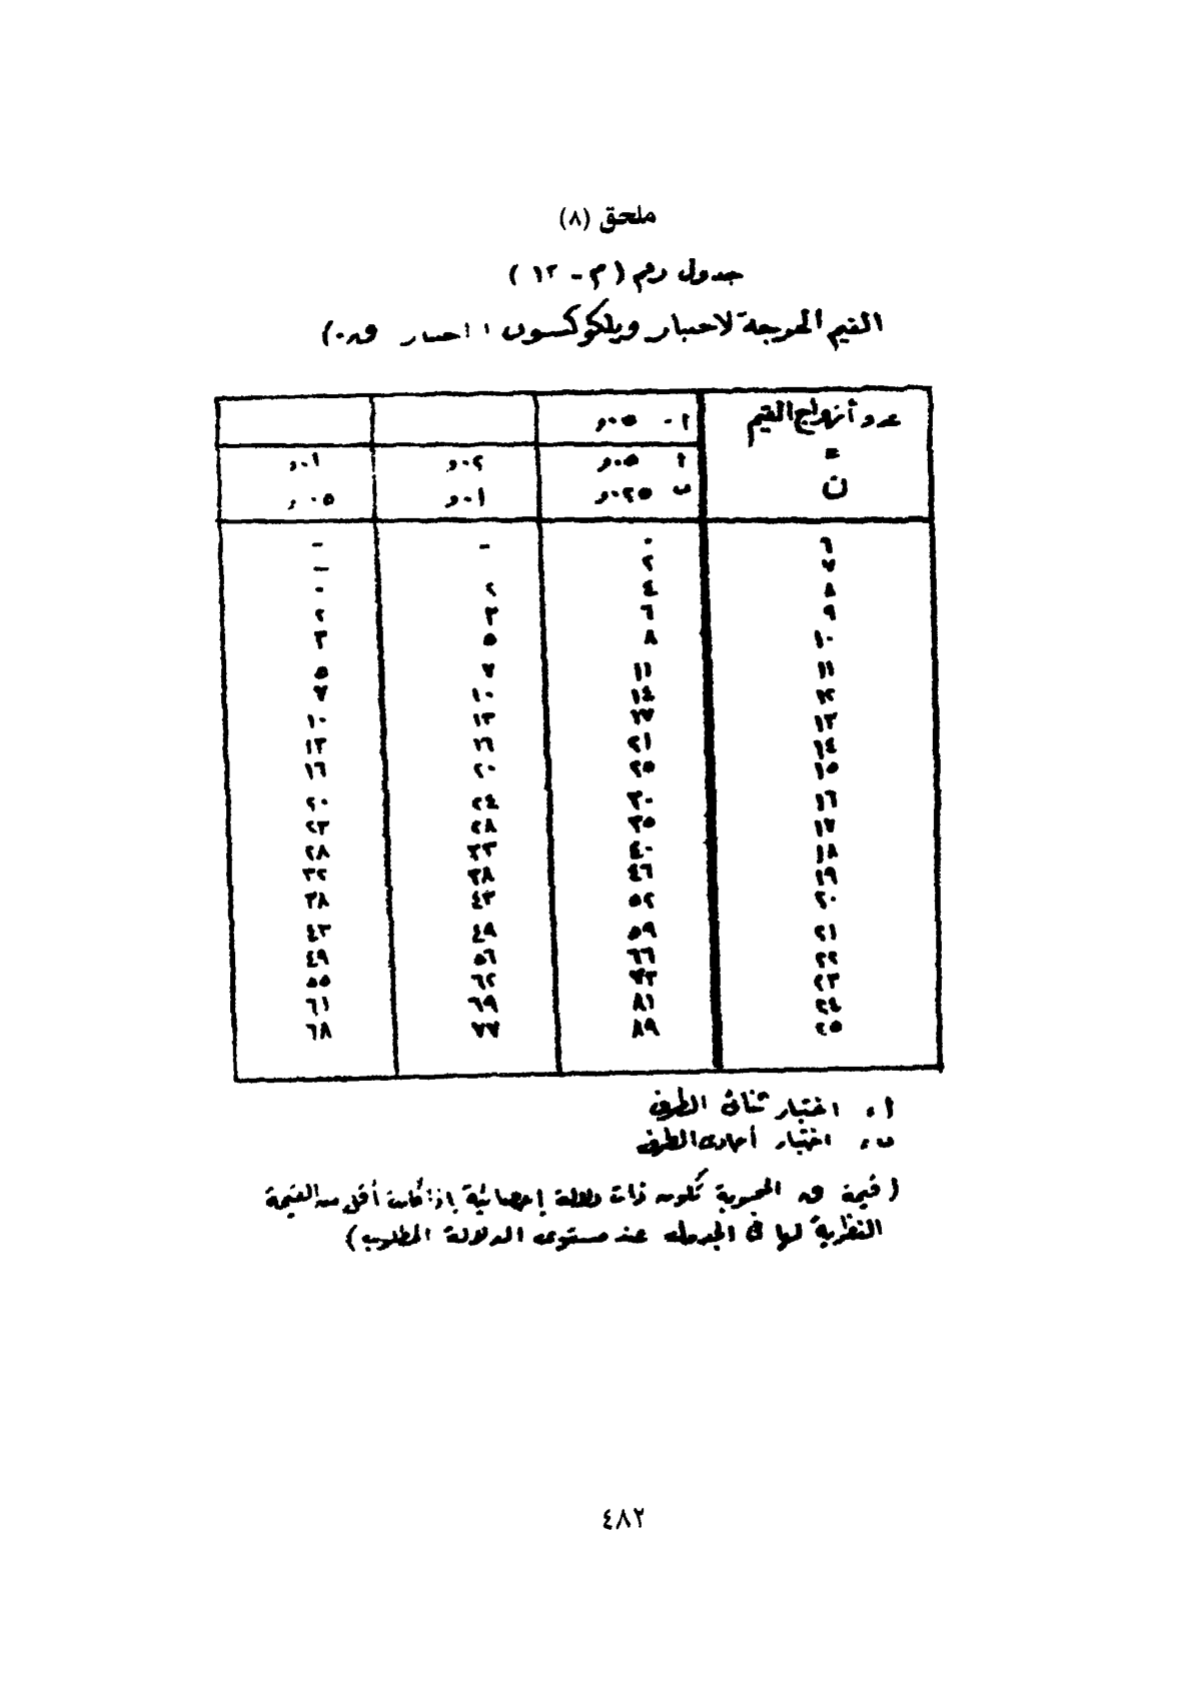 ملحق (٨)
جدول رقم (م - ١٢)
القيم الحرجة لاختبار ويلكوكسون (اختبار و)
عدد أزواج القيم = ن | أ ٠٥ر | ٠٢ر | ٠١ر
ب ٠٢٥ر | ٠١ر | ٠٠٥ر
٦ | ٠ | - | -
٧ | ٢ | | -
٨ | ٤ | ٢ | ٠
٩ | ٦ | ٣ | ٢
١٠ | ٨ | ٥ | ٣
١١ | ١١ | ٧ | ٥
١٢ | ١٤ | ١٠ | ٧
١٣ | ١٧ | ١٣ | ١٠
١٤ | ٢١ | ١٦ | ١٣
١٥ | ٢٥ | ٢٠ | ١٦
١٦ | ٣٠ | ٢٤ | ٢٠
١٧ | ٣٥ | ٢٨ | ٢٣
١٨ | ٤٠ | ٣٣ | ٢٨
١٩ | ٤٦ | ٣٨ | ٣٢
٢٠ | ٥٢ | ٤٣ | ٣٨
٢١ | ٥٩ | ٤٩ | ٤٣
٢٢ | ٦٦ | ٥٦ | ٤٩
٢٣ | ٧٣ | ٦٢ | ٥٥
٢٤ | ٨١ | ٦٩ | ٦١
٢٥ | ٨٩ | ٧٧ | ٦٨
أ = اختبار ثنائى الطرف
ب = اختبار أحادى الطرف
( قيمة و المحسوبة تكون ذات دلالة إحصائية إذا كانت أقل من القيمة
النظرية لها فى الجدول عند مستوى الدلالة المطلوب )
٤٨٢